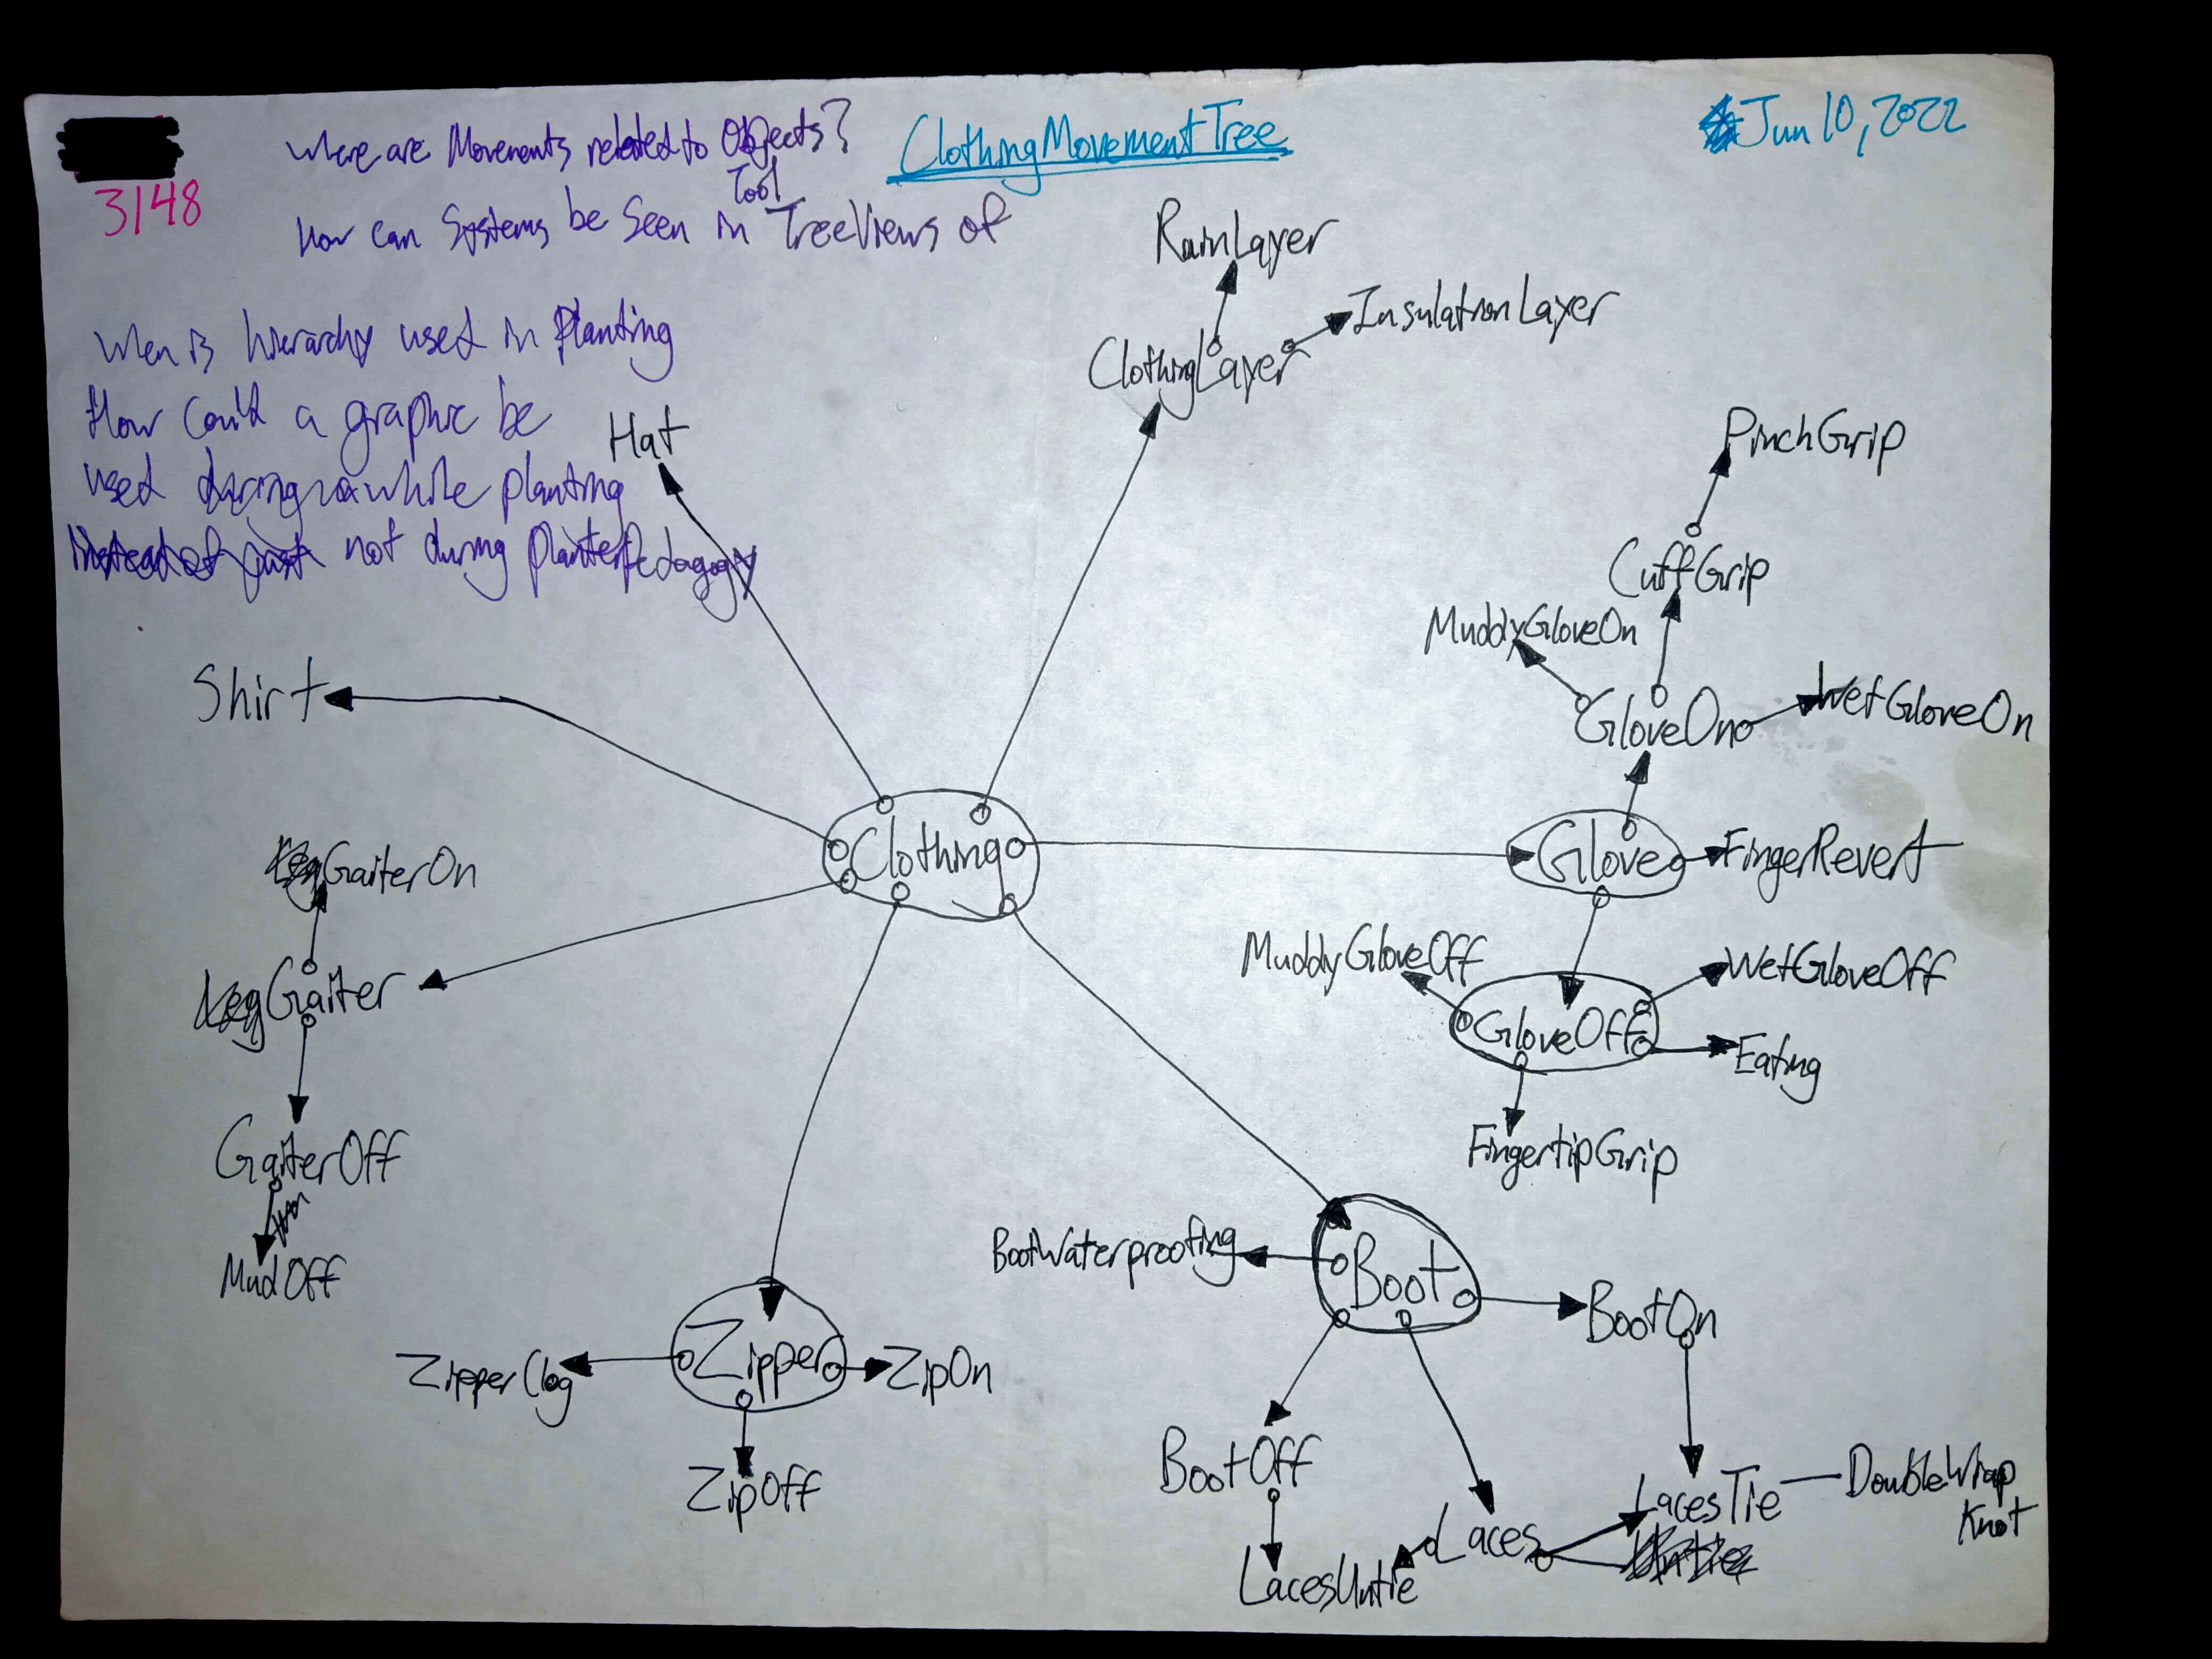 3148
Where are Movements related to Objects?
ClothingMovementTree
Jun 10, 2022
Tool
How can Systems be Seen in TreeViews of
When is hierarchy used in Planting
How could a graphic be
used during while planting
instead of just not during planterPedagogy
RainLayer
InsulationLayer
ClothingLayer
Hat
PinchGrip
CuffGrip
MuddyGloveOn
WetGloveOn
GloveOn
Shirt
Clothing
Glove
FingerRevert
Leg GaiterOn
MuddyGloveOff
WetGloveOff
Leg Gaiter
GloveOff
Eating
GaiterOff
FingertipGrip
MudOff
BootWaterproofing
Boot
BootOn
Zipper
ZipperClog
ZipOn
ZipOff
BootOff
LacesTie
DoubleWrap
Knot
Laces
Untie
LacesUntie